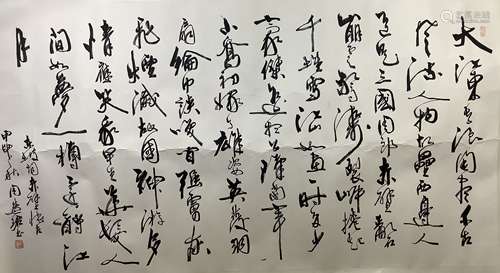 大江東去浪淘盡千古
風流人物故壘西邊人
道是三國周郎赤壁亂石
崩雲驚濤裂岸捲起
千堆雪江山如畫一時多少
豪傑遙想公瑾當年
小喬初嫁了雄姿英發羽
扇綸巾談笑間強虜灰
飛煙滅故國神遊多
情應笑我早生華髮人
間如夢一樽還酹江
月
詞赤壁懷古
甲申秋周